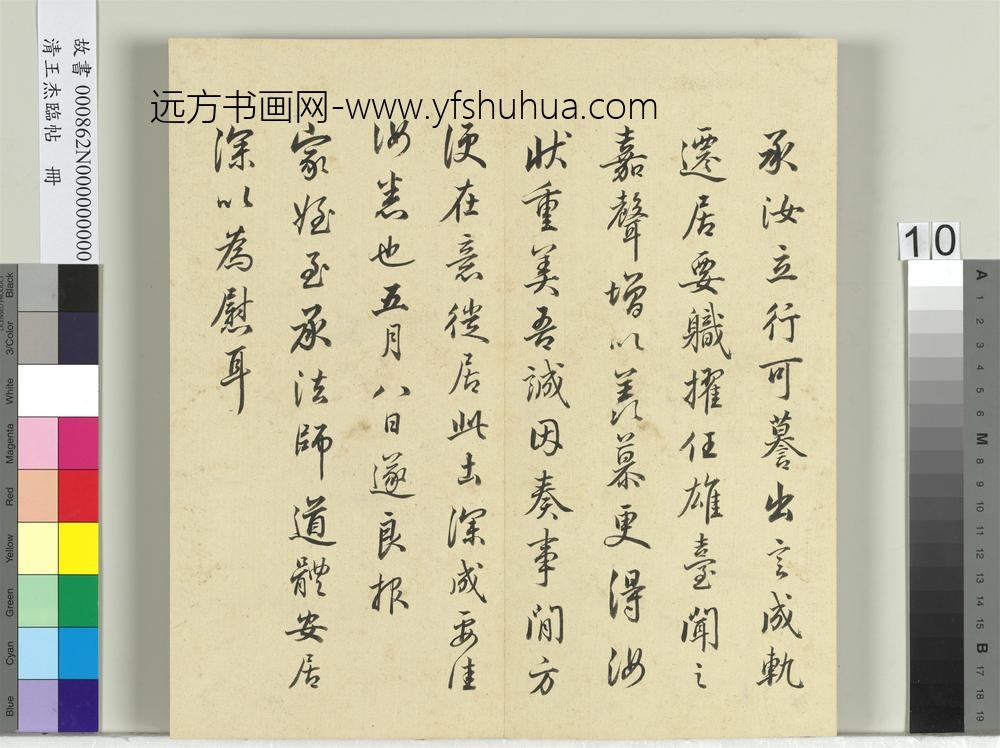 承汝立行可謩出言成軌
遷居要職擢任雄臺聞之
嘉聲增以羨慕更得汝
狀重美吾誠因奏事間方
便在意從居此出深成要佳
汝悉也五月八日遂良報
家姪至承法師道體安居
深以為慰耳
远方书画网-www.yfshuhua.com
故書 000862N000000000
清王杰臨帖 冊
10
Black
3/Color
White
Magenta
Red
Yellow
Green
Cyan
Blue
A
1
2
3
4
5
6
M
8
9
10
11
12
13
14
15
B
17
18
19